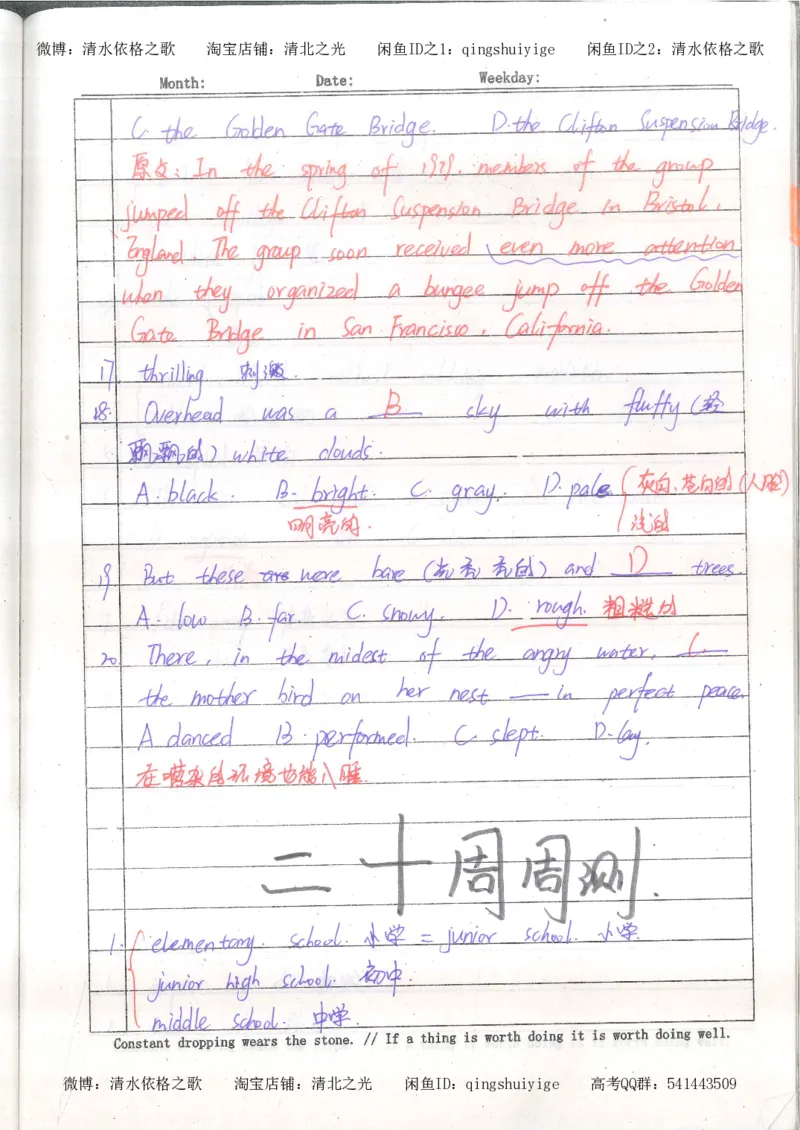 微博：清水依格之歌 淘宝店铺：清北之光 闲鱼ID之1：qingshuiyige 闲鱼ID之2：清水依格之歌
Month: Date: Weekday:
C. the Golden Gate Bridge. D. the Clifton Suspension Bridge.
原文：In the spring of 1979, members of the group
jumped off the Clifton Suspension Bridge in Bristol,
England. The group soon received even more attention
when they organized a bungee jump off the Golden
Gate Bridge in San Francisco, California.
17. thrilling 刺激.
18. Overhead was a B sky with fluffy (轻
飘飘的) white clouds.
A. black. B. bright. C. gray. D. pale. (灰白、苍白的(人脸)
明亮的. 浅的
19 But these are were bare (光秃秃的) and D trees.
A. low B. far. C. snowy. D. rough. 粗糙的
20. There, in the midest of the angry water, C
the mother bird on her nest — in perfect peace.
A danced B. performed. C. slept. D. lay.
在嘈杂的环境也能入睡.
二十周周测.
1. elementary. school. 小学 = junior school. 小学.
junior high school. 初中.
middle school. 中学.
Constant dropping wears the stone. // If a thing is worth doing it is worth doing well.
微博：清水依格之歌 淘宝店铺：清北之光 闲鱼ID：qingshuiyige 高考QQ群：541443509